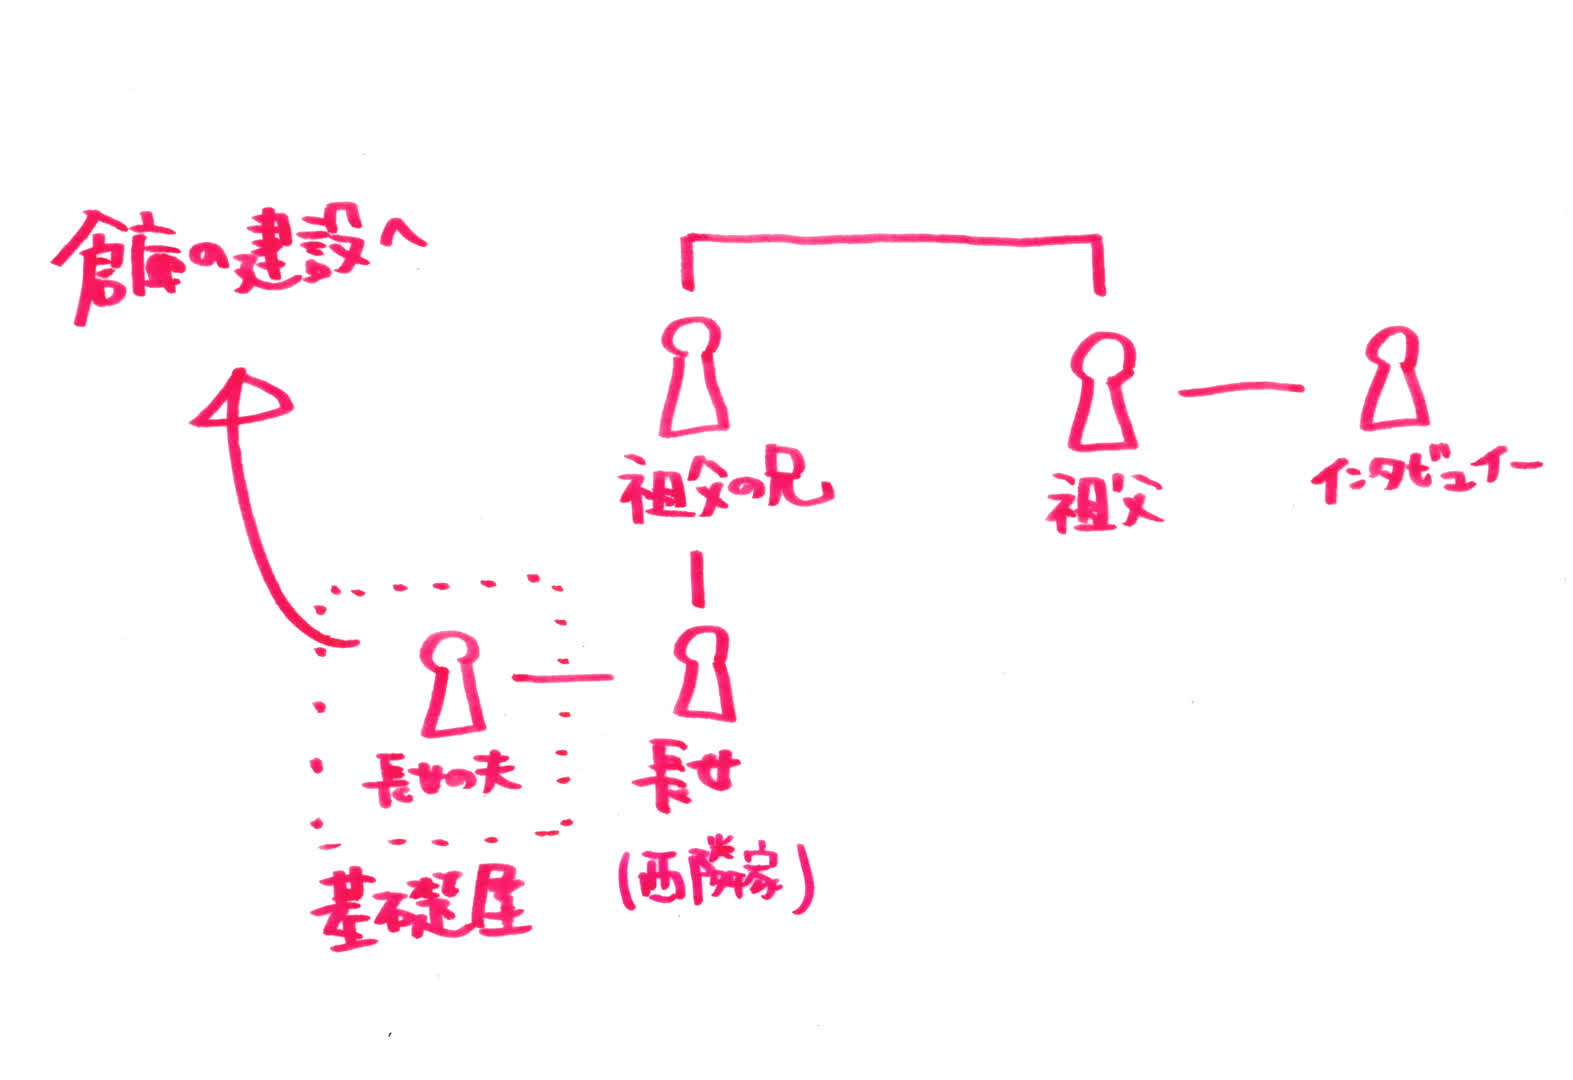 倉庫の建設へ
祖父の兄
祖父
インタビュイー
長女の夫
長女
(西隣家)
基礎屋